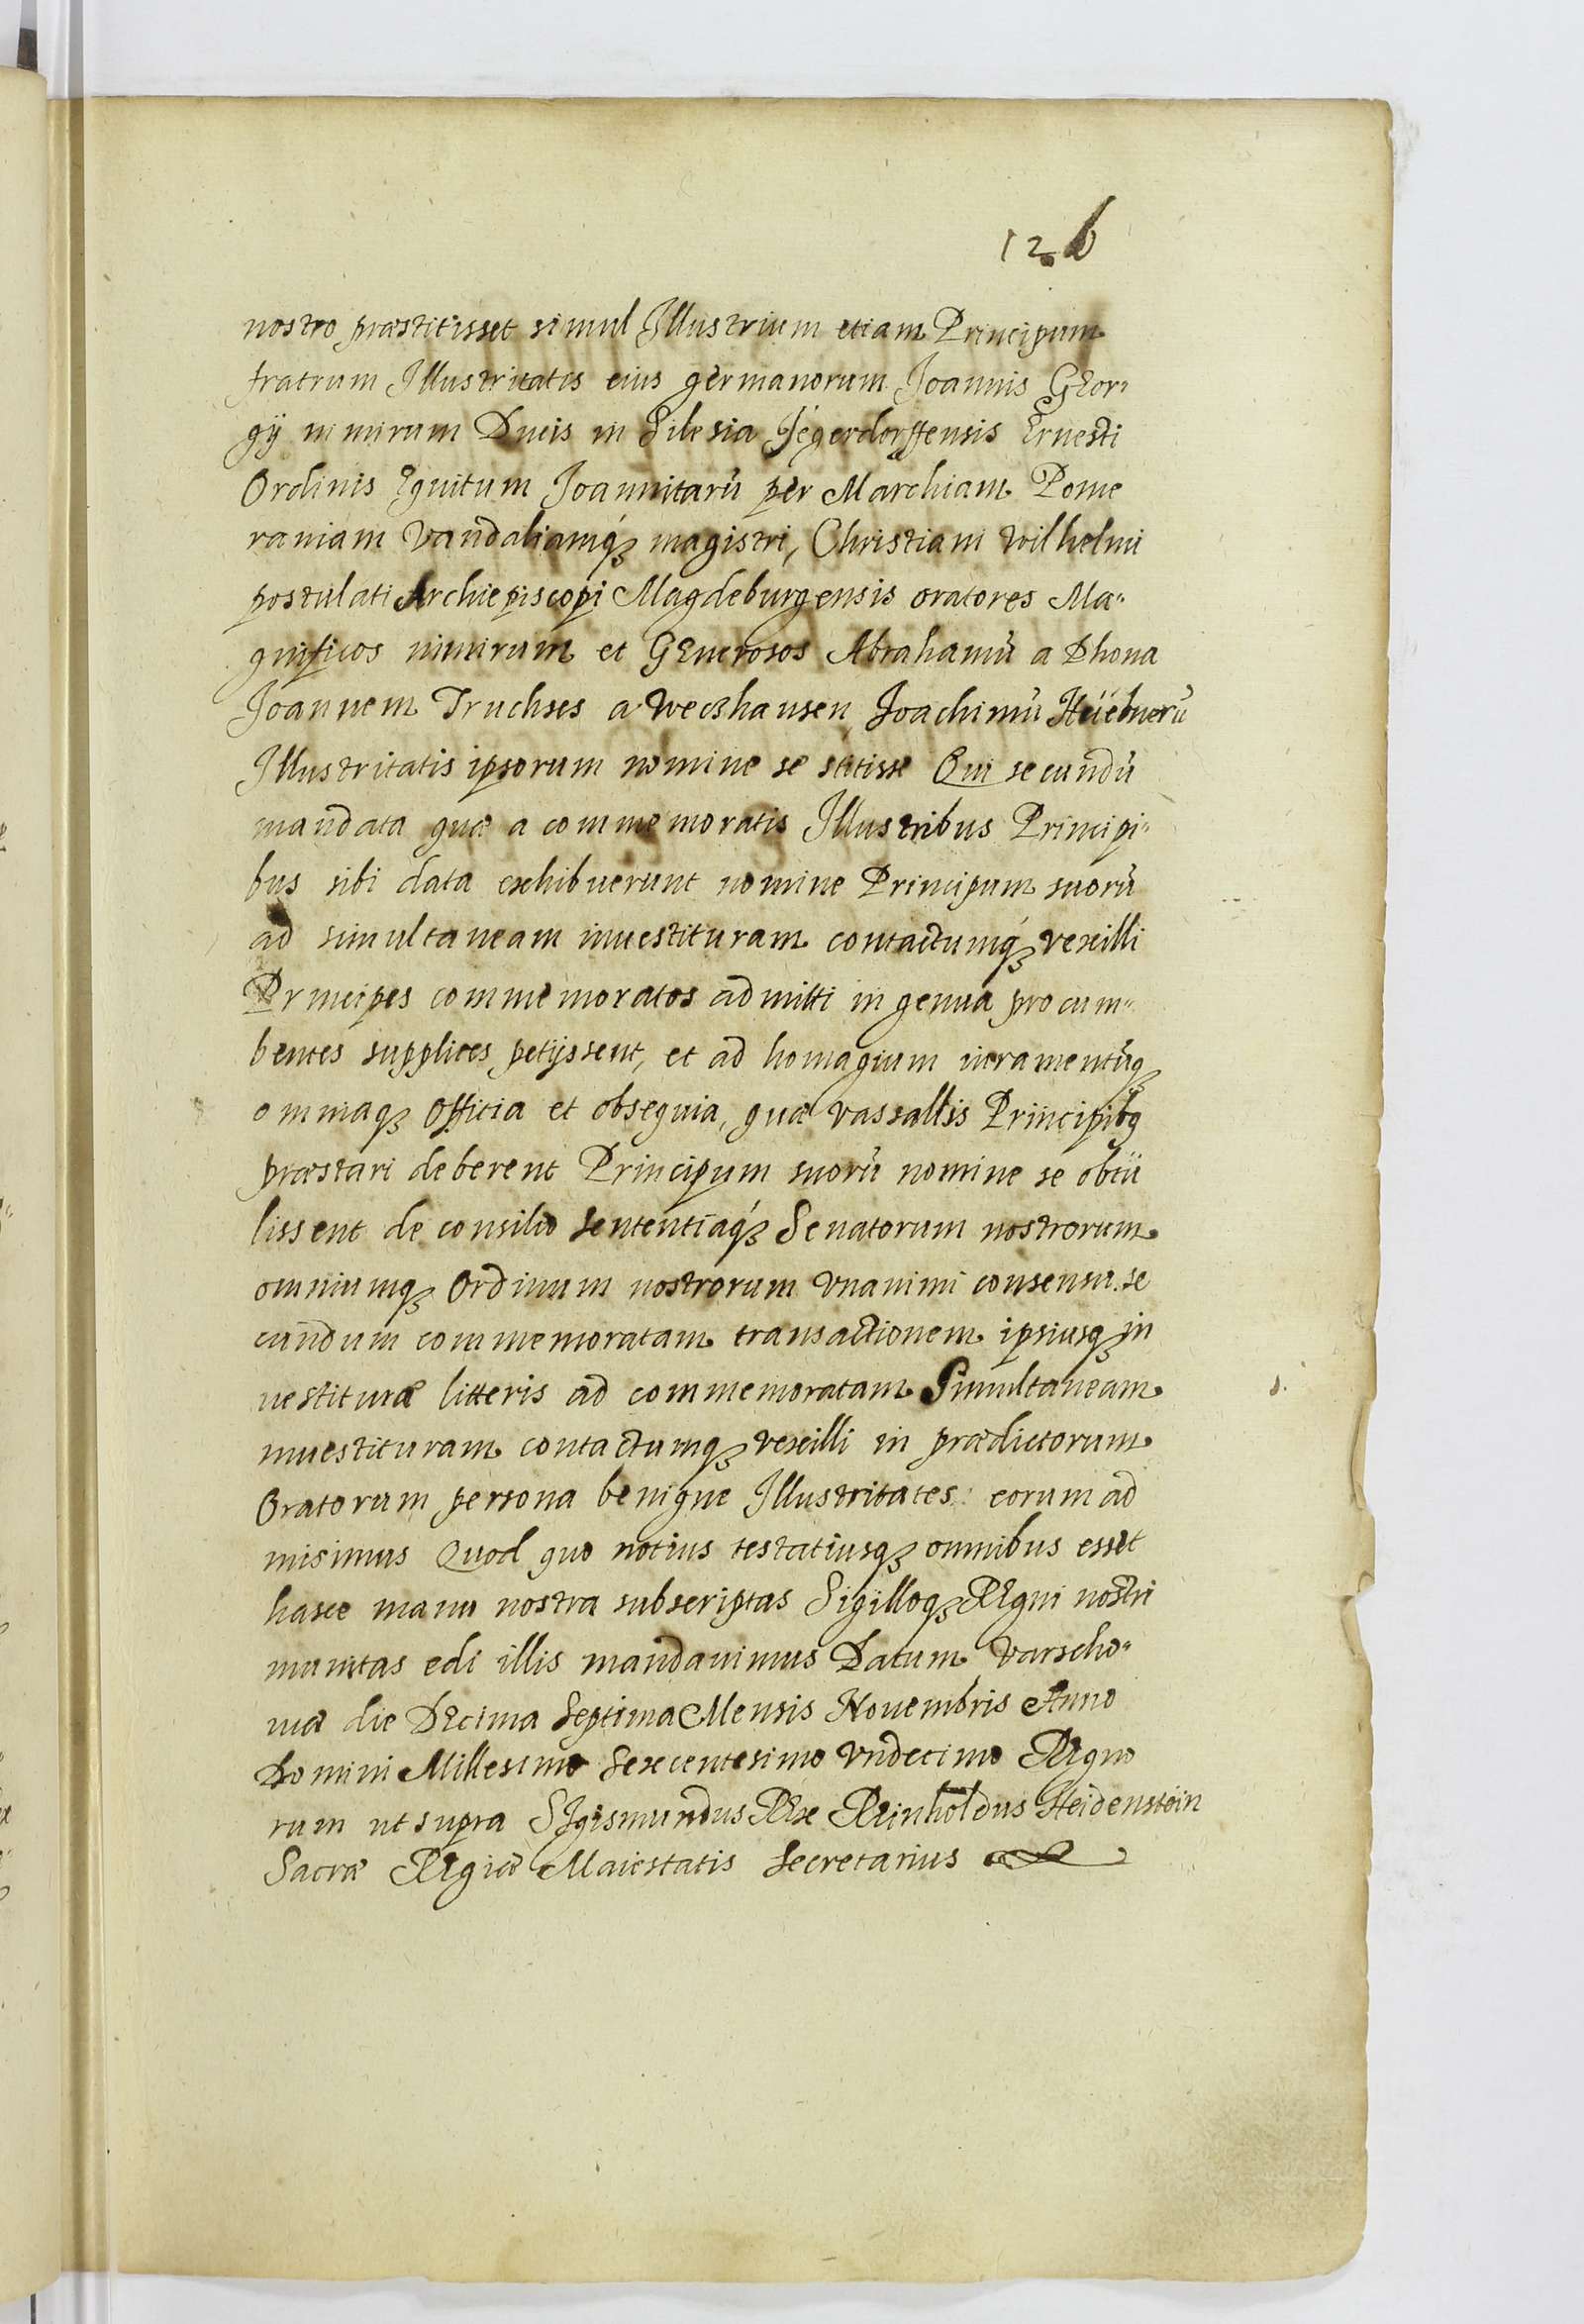 12. b
nostro præstitisset simul Illustrium etiam Principum
fratrum Illustritatis eius germanorum Joannis Geor„
gÿ nimirum Ducis in Silesia Jëgerdorffensis Ernesti
Ordinis Equitum Joannitarū per Marchiam Pome
raniam Vandaliamq́ꝫ magistri, Christiani Wilhelmi
postulati Archiepiscopi Magdeburgensis oratores Ma„
gnificos nimirum et Generosos Abrahamū a Dhona
Joannem Truchses a Weczhausen Joachimū Hüebnerū
Illustritatis ipsorum nomine se stitisse Qui secundū
mandata quæ a commemoratis Illustribus Principi„
bus sibi data exhibuerunt nomine Principum suorū
ad simultaneam inuestituram contactumq́ꝫ vexilli
Principes commemoratos admitti in genua procum„
bentes supplices petÿssent, et ad homagium iuramentūqꝫ
omniaqꝫ officia et obsequia, quæ vassallis Principibꝫ
præstari deberent Principum suorū nomine se obtu
lissent de consilio sententiaq́ꝫ Senatorum nostrorum
omniumqꝫ Ordinum nostrorum vnanimi consensu se
cundum commemoratam transactionem ipsiusqꝫ in
uestituræ litteris ad commemoratam Simultaneam
inuestituram contactumqꝫ vexilli in prædictorum
Oratorum persona benigne Illustritates eorum ad
misimus Quod quo notius testatiusqꝫ omnibus esset
hasce manu nostra subscriptas Sigilloqꝫ Regni nostri
munitas edi illis mandauimus Datum Varscho„
uiæ die Decima Septima Mensis Nouembris Anno
Domini Millesimo Sexcentesimo Vndecimo Regno
rum ut supra Sigismundus Rex Reinholdus Heidenstein
Sacræ Regiæ Maiestatis Secretarius